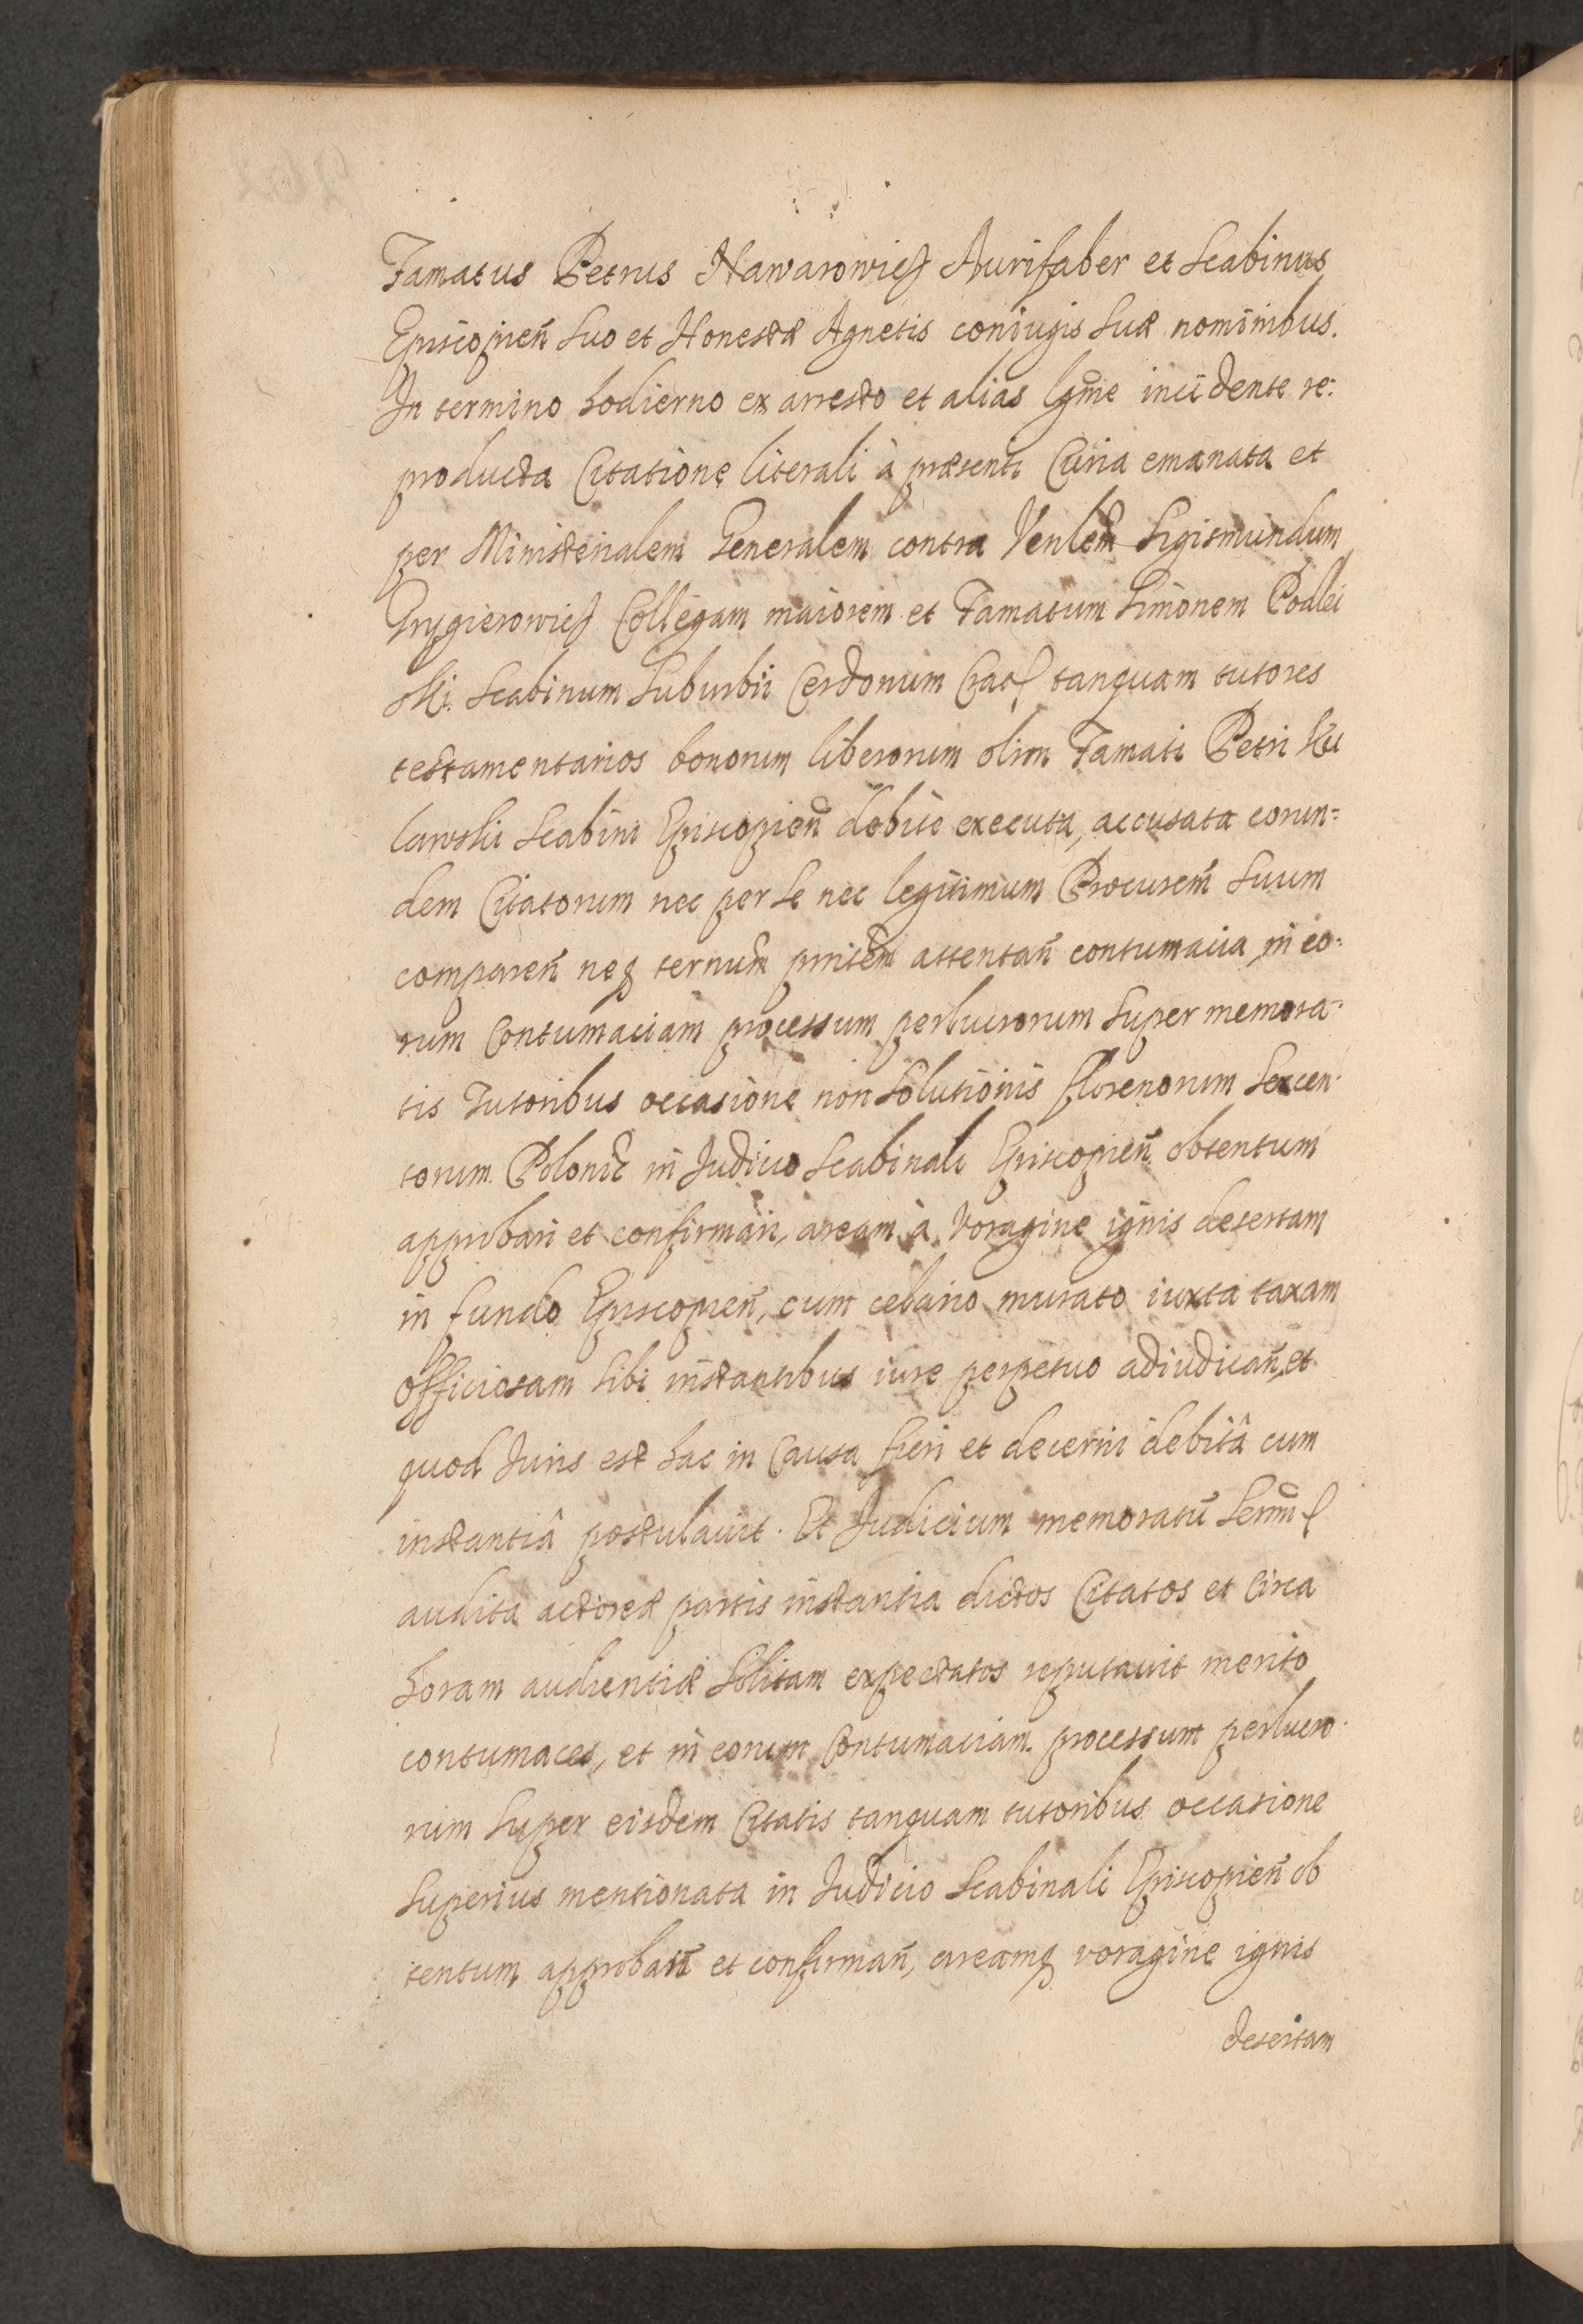 Famatus Petrus Nawarowicz Aurifaber et Scabinus
Episcopień suo et Honestæ Agnetis coniugis suæ nominibus.
In termino hodierno ex arresto et alias lgme incidente re:
producta Citatione literali à præsenti Curia emanata et
per Ministerialem Generalem contra Venlem Sigismundum
Grygierowicz Collegam maiorem et Famatum Simonem Podlei
ski Scabinum Suburbii Cerdonum Crac tanquam tutores
testamentarios bonorum liberorum olim Famati Petri Ku
lawskii Scabini Episcopień debitè executa, accusata eorun=
dem Citatorum nec per se nec legitimum Procurem suum
comparen neq ternum pntem attentan contumacia, in eo:
rum Contumaciam processum perlucrorum super memora=
tis Tutoribus occasione non solutionis florenorum sexcen
torum Polonic in Judicio Scabinali Episcopień obtentum
approbari et confirmari, aream à voragine ignis desertam
in fundo Episcopień, cum celario murato iuxta taxam
officiosam sibi instantibus iure perpetuo adiudicari, et
quod Juris est hac in Causa fieri et decerni debitâ cum
instantiâ postulavit. Et Judicium memoratū
audita actoreæ partis instantia dictos Citatos et Circa
horam audientiæ solitam expectatos reputavit merito
contumaces, et in eorum Contumaciam processum perlucro
rum super eisdem Citatis tanquam tutoribus occasione
superius mentionata in Judicio Scabinali Episcopień ob
tentum approban et confirman, areamq voragine ignis
desertam